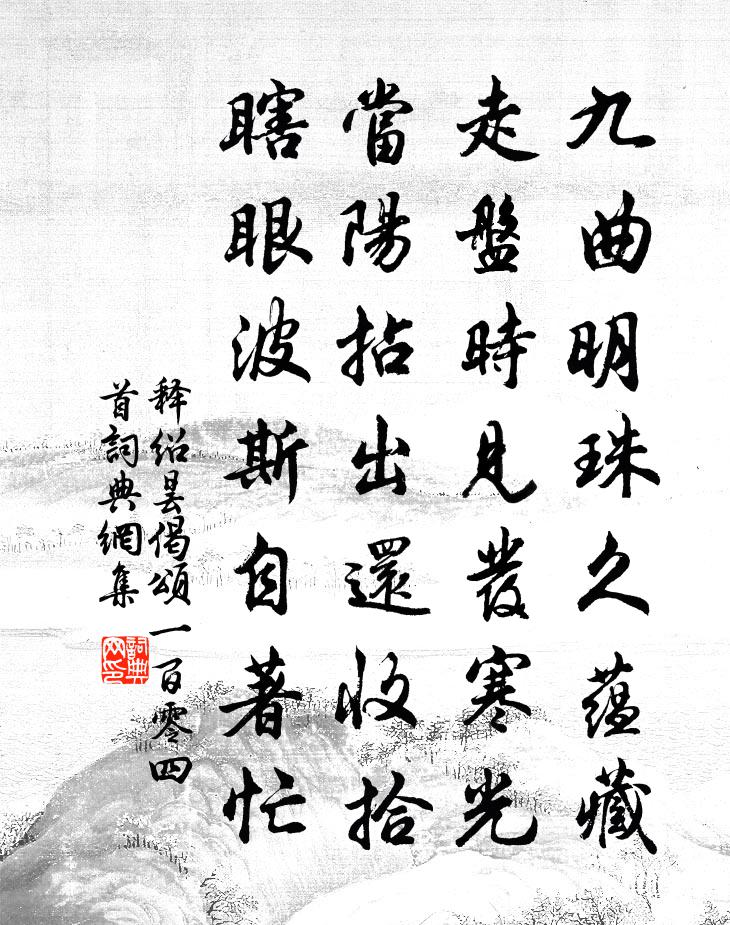 九曲明珠久蕴藏
走盤時見發寒光
當陽拈出還收拾
瞎眼波斯自著忙
释绍昙偈頌一百零四
首詞典網集
詞典
网印